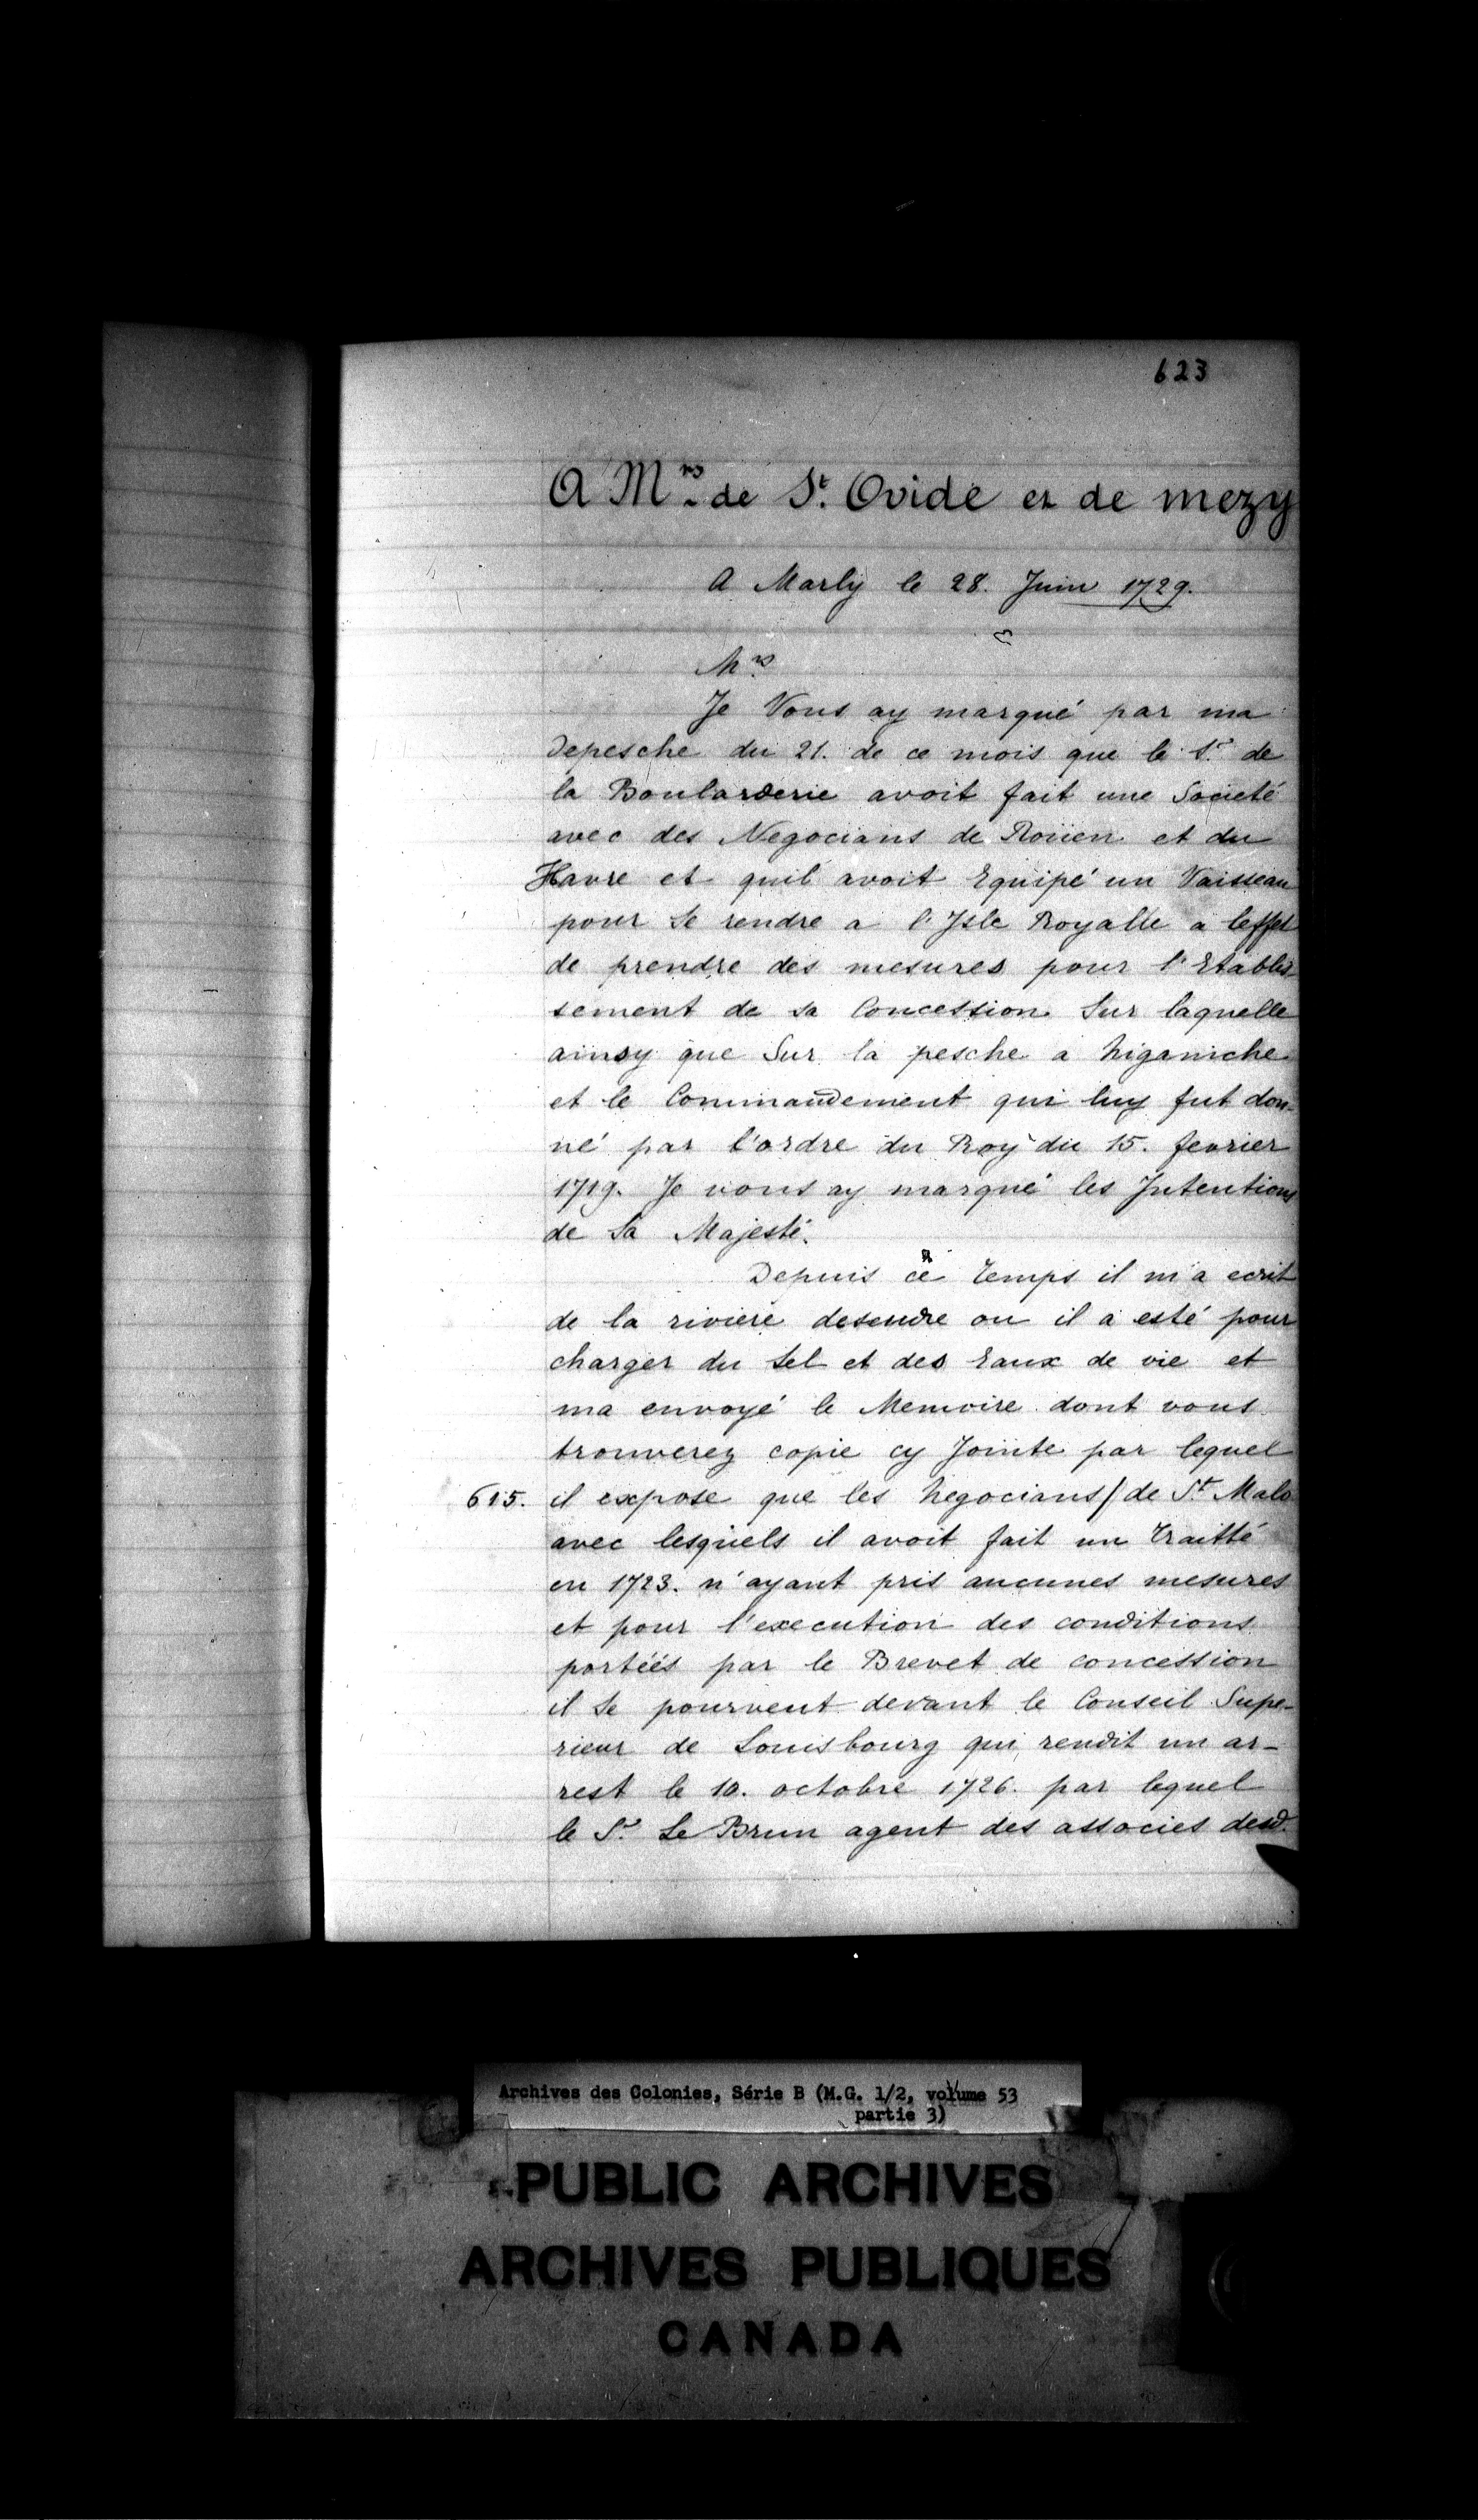 623
A Mrs de St. Ovide et de mezy
A Marly le 28. Juin 1729.
Mrs
Je Vous ay marqué par ma
Depesche du 21. de ce mois que le Sr. de
la Boularderie avoit fait une Societé
avec des Negocians de Roüen et du
Havre et quil avoit Equipé un Vaisseau
pour Se rendre a l'Isle Royalle a leffet
de prendre des mesures pour l'Etablis
sement de sa Concession Sur laquelle
ainsy que Sur la pesche a niganiche
et le Commandement qui luy fut don-
né par l'ordre du Roy du 15. fevrier
1719. Je vous ay marqué les Intentions
de Sa Majesté.
Depuis ce Temps il m'a ecrit
de la riviere desendre ou il a esté pour
charger du Sel et des Eaux de vie et
ma envoyé le Memoire dont vous
trouverez copie cy Jointe par lequel
615. il expose que les negocians/de St. Malo
avec lesquels il avoit fait un Traitté
en 1723. n'ayant pris aucunes mesures
et pour l'execution des conditions
portéés par le Brevet de concession
il Se pourveut devant le Conseil Supe-
rieur de Louisbourg qui rendit un ar-
rest le 10. octobre 1726. par lequel
le Sr. Le Brun agent des associes desd.
Archives des Colonies, Série B (M.G. 1/2, volume 53
partie 3)
PUBLIC ARCHIVES
ARCHIVES PUBLIQUES
CANADA